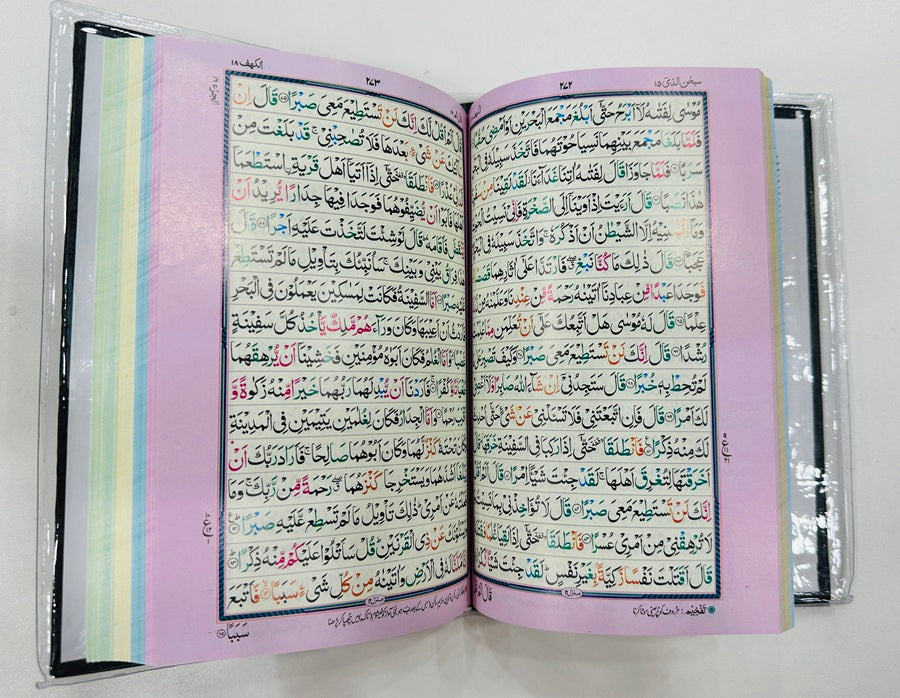 سبحٰن الذیٓ ١٥
٢٧٢
مُوْسٰى لِفَتٰىهُ لَاۤ اَبْرَحُ حَتّٰۤى اَبْلُغَ مَجْمَعَ الْبَحْرَيْنِ اَوْ اَمْضِيَ
فَلَمَّا بَلَغَا مَجْمَعَ بَيْنِهِمَا نَسِيَا حُوْتَهُمَا فَاتَّخَذَ سَبِيْلَهٗ فِى
سَرَبًا فَلَمَّا جَاوَزَا قَالَ لِفَتٰىهُ اٰتِنَا غَدَآءَنَا لَقَدْ لَقِيْنَا مِنْ
هٰذَا نَصَبًا قَالَ اَرَءَيْتَ اِذْ اَوَيْنَاۤ اِلَى الصَّخْرَةِ فَاِنِّىْ نَسِيْتُ
وَمَاۤ اَنْسٰىنِيْهُ اِلَّا الشَّيْطٰنُ اَنْ اَذْكُرَهٗ وَاتَّخَذَ سَبِيْلَهٗ فِى
عَجَبًا قَالَ ذٰلِكَ مَا كُنَّا نَبْغِ فَارْتَدَّا عَلٰۤى اٰثَارِهِمَا قَصَصًا
فَوَجَدَا عَبْدًا مِّنْ عِبَادِنَاۤ اٰتَيْنٰهُ رَحْمَةً مِّنْ عِنْدِنَا وَعَلَّمْنٰهُ مِنْ
عِلْمًا قَالَ لَهٗ مُوْسٰى هَلْ اَتَّبِعُكَ عَلٰۤى اَنْ تُعَلِّمَنِ مِمَّا
رُشْدًا قَالَ اِنَّكَ لَنْ تَسْتَطِيْعَ مَعِىَ صَبْرًا وَكَيْفَ تَصْبِرُ
لَمْ تُحِطْ بِهٖ خُبْرًا قَالَ سَتَجِدُنِىْۤ اِنْ شَآءَ اللّٰهُ صَابِرًا وَّلَاۤ
لَكَ اَمْرًا قَالَ فَاِنِ اتَّبَعْتَنِىْ فَلَا تَسْـَٔلْنِىْ عَنْ شَىْءٍ حَتّٰۤى
لَكَ مِنْهُ ذِكْرًا فَانْطَلَقَا حَتّٰۤى اِذَا رَكِبَا فِى السَّفِيْنَةِ خَرَقَهَا
اَخَرَقْتَهَا لِتُغْرِقَ اَهْلَهَا لَقَدْ جِئْتَ شَيْـًٔا اِمْرًا قَالَ اَلَمْ
اِنَّكَ لَنْ تَسْتَطِيْعَ مَعِىَ صَبْرًا قَالَ لَا تُؤَاخِذْنِىْ بِمَا
لَا تُرْهِقْنِىْ مِنْ اَمْرِىْ عُسْرًا فَانْطَلَقَا حَتّٰۤى اِذَا لَقِيَا
قَالَ اَقَتَلْتَ نَفْسًا زَكِيَّةً بِغَيْرِ نَفْسٍ لَقَدْ جِئْتَ شَيْـًٔا
قَالَ
الكهف ١٨
٢٧٣
اَقُلْ لَّكَ اِنَّكَ لَنْ تَسْتَطِيْعَ مَعِىَ صَبْرًا قَالَ اِنْ
عَنْ شَىْءٍ بَعْدَهَا فَلَا تُصٰحِبْنِىْ قَدْ بَلَغْتَ مِنْ
فَانْطَلَقَا حَتّٰۤى اِذَاۤ اَتَيَاۤ اَهْلَ قَرْيَةِ اسْتَطْعَمَاۤ
اَنْ يُّضَيِّفُوْهُمَا فَوَجَدَا فِيْهَا جِدَارًا يُّرِيْدُ اَنْ
فَاَقَامَهٗ قَالَ لَوْ شِئْتَ لَتَّخَذْتَ عَلَيْهِ اَجْرًا قَالَ
بَيْنِىْ وَبَيْنِكَ سَاُنَبِّئُكَ بِتَاْوِيْلِ مَا لَمْ تَسْتَطِعْ
صَبْرًا اَمَّا السَّفِيْنَةُ فَكَانَتْ لِمَسٰكِيْنَ يَعْمَلُوْنَ فِى الْبَحْرِ
اَنْ اَعِيْبَهَا وَكَانَ وَرَآءَهُمْ مَّلِكٌ يَّاْخُذُ كُلَّ سَفِيْنَةٍ
وَاَمَّا الْغُلٰمُ فَكَانَ اَبَوٰهُ مُؤْمِنَيْنِ فَخَشِيْنَاۤ اَنْ يُّرْهِقَهُمَا
وَّكُفْرًا فَاَرَدْنَاۤ اَنْ يُّبْدِلَهُمَا رَبُّهُمَا خَيْرًا مِّنْهُ زَكٰوةً وَّ
رُحْمًا وَاَمَّا الْجِدَارُ فَكَانَ لِغُلٰمَيْنِ يَتِيْمَيْنِ فِى الْمَدِيْنَةِ
تَحْتَهٗ كَنْزٌ لَّهُمَا وَكَانَ اَبُوْهُمَا صَالِحًا فَاَرَادَ رَبُّكَ اَنْ
اَشُدَّهُمَا وَيَسْتَخْرِجَا كَنْزَهُمَا رَحْمَةً مِّنْ رَّبِّكَ وَمَا
عَنْ اَمْرِىْ ذٰلِكَ تَاْوِيْلُ مَا لَمْ تَسْطِعْ عَّلَيْهِ صَبْرًا
عَنْ ذِى الْقَرْنَيْنِ قُلْ سَاَتْلُوْا عَلَيْكُمْ مِّنْهُ ذِكْرًا
لَهٗ فِى الْاَرْضِ وَاٰتَيْنٰهُ مِنْ كُلِّ شَىْءٍ سَبَبًا فَاَتْبَعَ
سَبَبًا